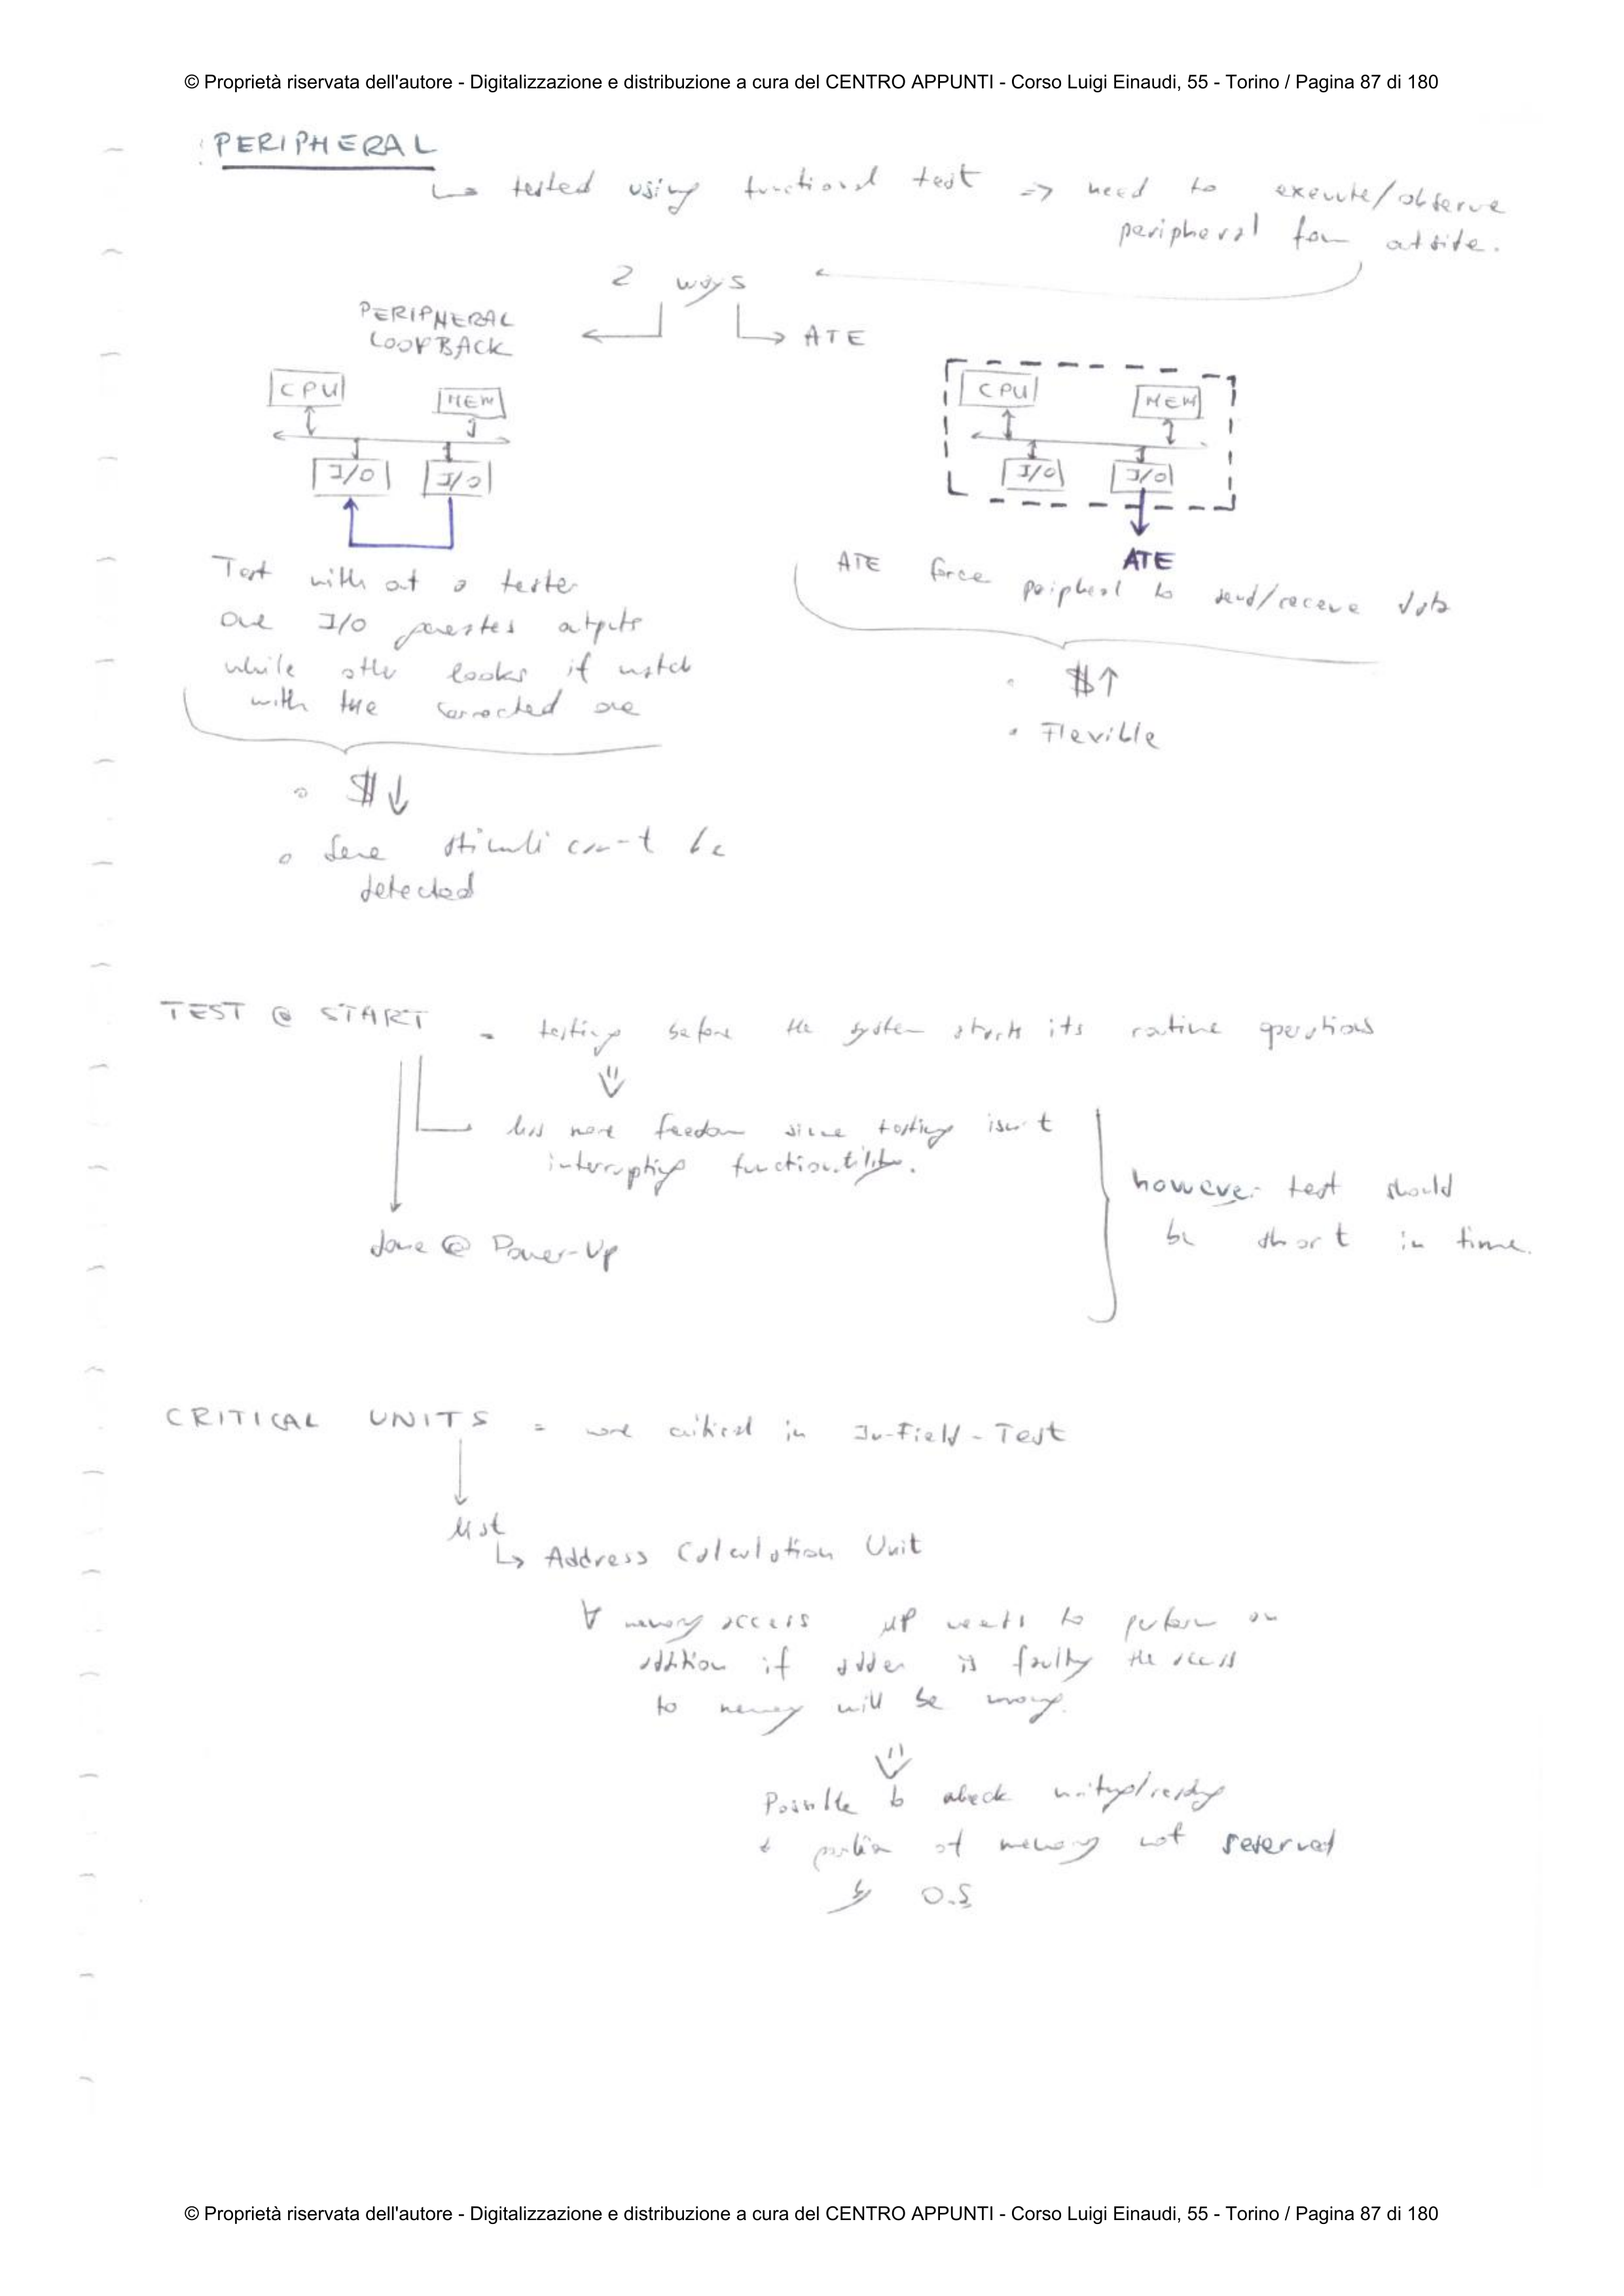 © Proprietà riservata dell'autore - Digitalizzazione e distribuzione a cura del CENTRO APPUNTI - Corso Luigi Einaudi, 55 - Torino / Pagina 87 di 180
PERIPHERAL
↳ tested using functional test => need to execute/observe
peripheral from outside.
2 ways
PERIPHERAL
LOOPBACK
ATE
CPU
MEM
I/O
I/O
CPU
MEM
I/O
I/O
ATE
Test without a tester
one I/O generates outputs
while other looks if match
with the corrected one
$↓
Some stimuli can't be
detected
ATE force peripheral to send/receive data
$↑
Flexible
TEST @ START = testing before the system starts its routine operations
has more freedom since testing isn't
interrupting functionality.
done @ Power-Up
however test should
be short in time.
CRITICAL UNITS = more critical in In-Field-Test
↳ Address Calculation Unit
∀ memory access μP wants to perform an
addition if adder is faulty the access
to memory will be wrong.
Possible to check writing/reading
portion of memory not reserved
by O.S
© Proprietà riservata dell'autore - Digitalizzazione e distribuzione a cura del CENTRO APPUNTI - Corso Luigi Einaudi, 55 - Torino / Pagina 87 di 180